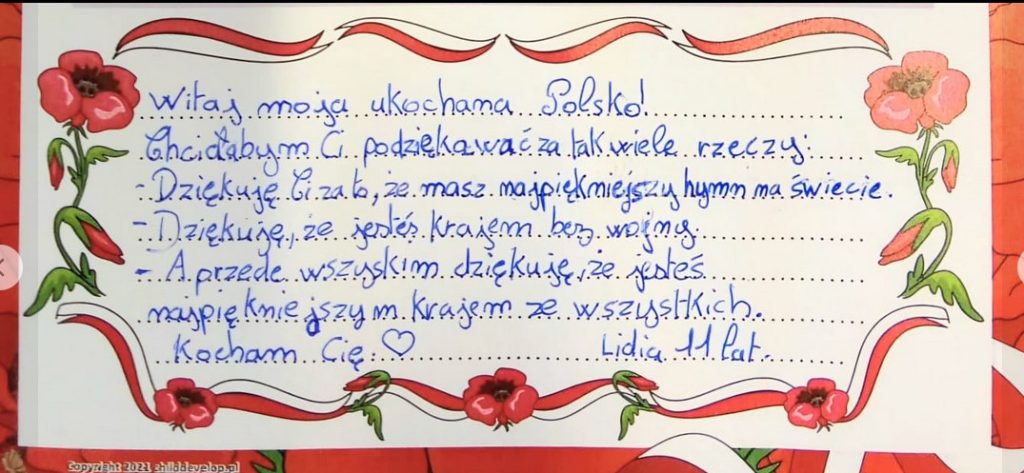 Witaj moja ukochana Polsko!
Chciałabym Ci podziękawać za tak wiele rzeczy:
- Dziękuję Ci za to, że masz najpiękniejszy hymn na świecie.
- Dziękuję, że jesteś krajem bez wojny.
- A przede wszyskim dziękuję, że jesteś
najpiękniejszym krajem ze wszystkich.
Kocham Cię ♡ Lidia 11 lat.
Copyright 2021 childdevelop.pl